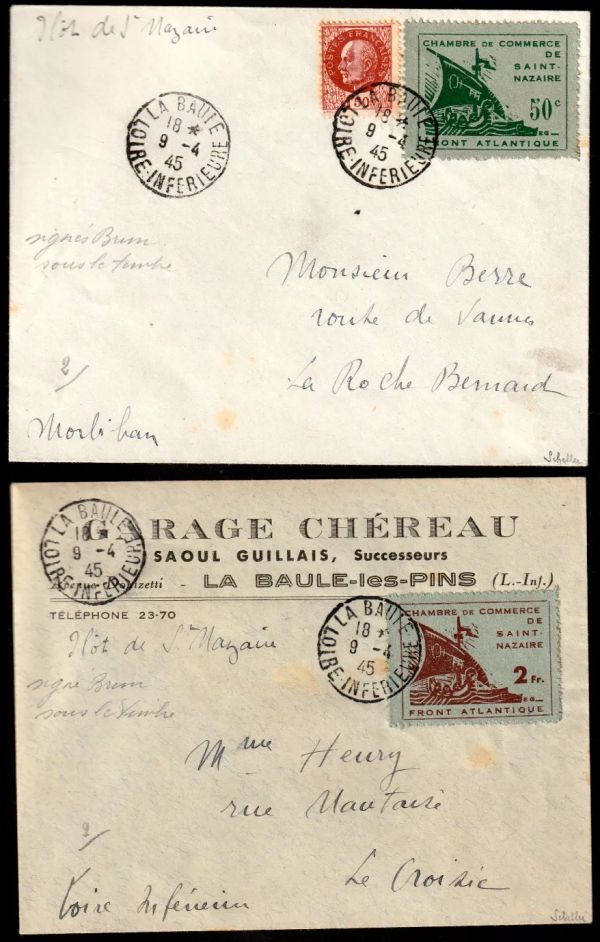 Ilôt de St Nazaire
POSTES FRANÇAISES
CHAMBRE DE COMMERCE
DE
SAINT-
NAZAIRE
50c
EG
FRONT ATLANTIQUE
LA BAULE
18 *
9 -4
45
LOIRE-INFERIEURE
LA BAULE
18 *
9 -4
45
LOIRE-INFERIEURE
signés Brun
sous le timbre
Monsieur Berre
route de Vannes
La Roche Bernard
2/
Morbihan
Schiller
GARAGE CHÉREAU
SAOUL GUILLAIS, Successeurs
Avenue Donizetti - LA BAULE-les-PINS (L.-Inf.)
TÉLÉPHONE 23-70
LA BAULE
18 *
9 -4
45
LOIRE-INFERIEURE
LA BAULE
18 *
9 -4
45
LOIRE-INFERIEURE
CHAMBRE DE COMMERCE
DE
SAINT-
NAZAIRE
2 Fr.
EG
FRONT ATLANTIQUE
Ilôt de St Nazaire
signé Brun
sous le timbre
Mme Henry
rue
Le Croisic
2/
Loire Inférieure
Schiller